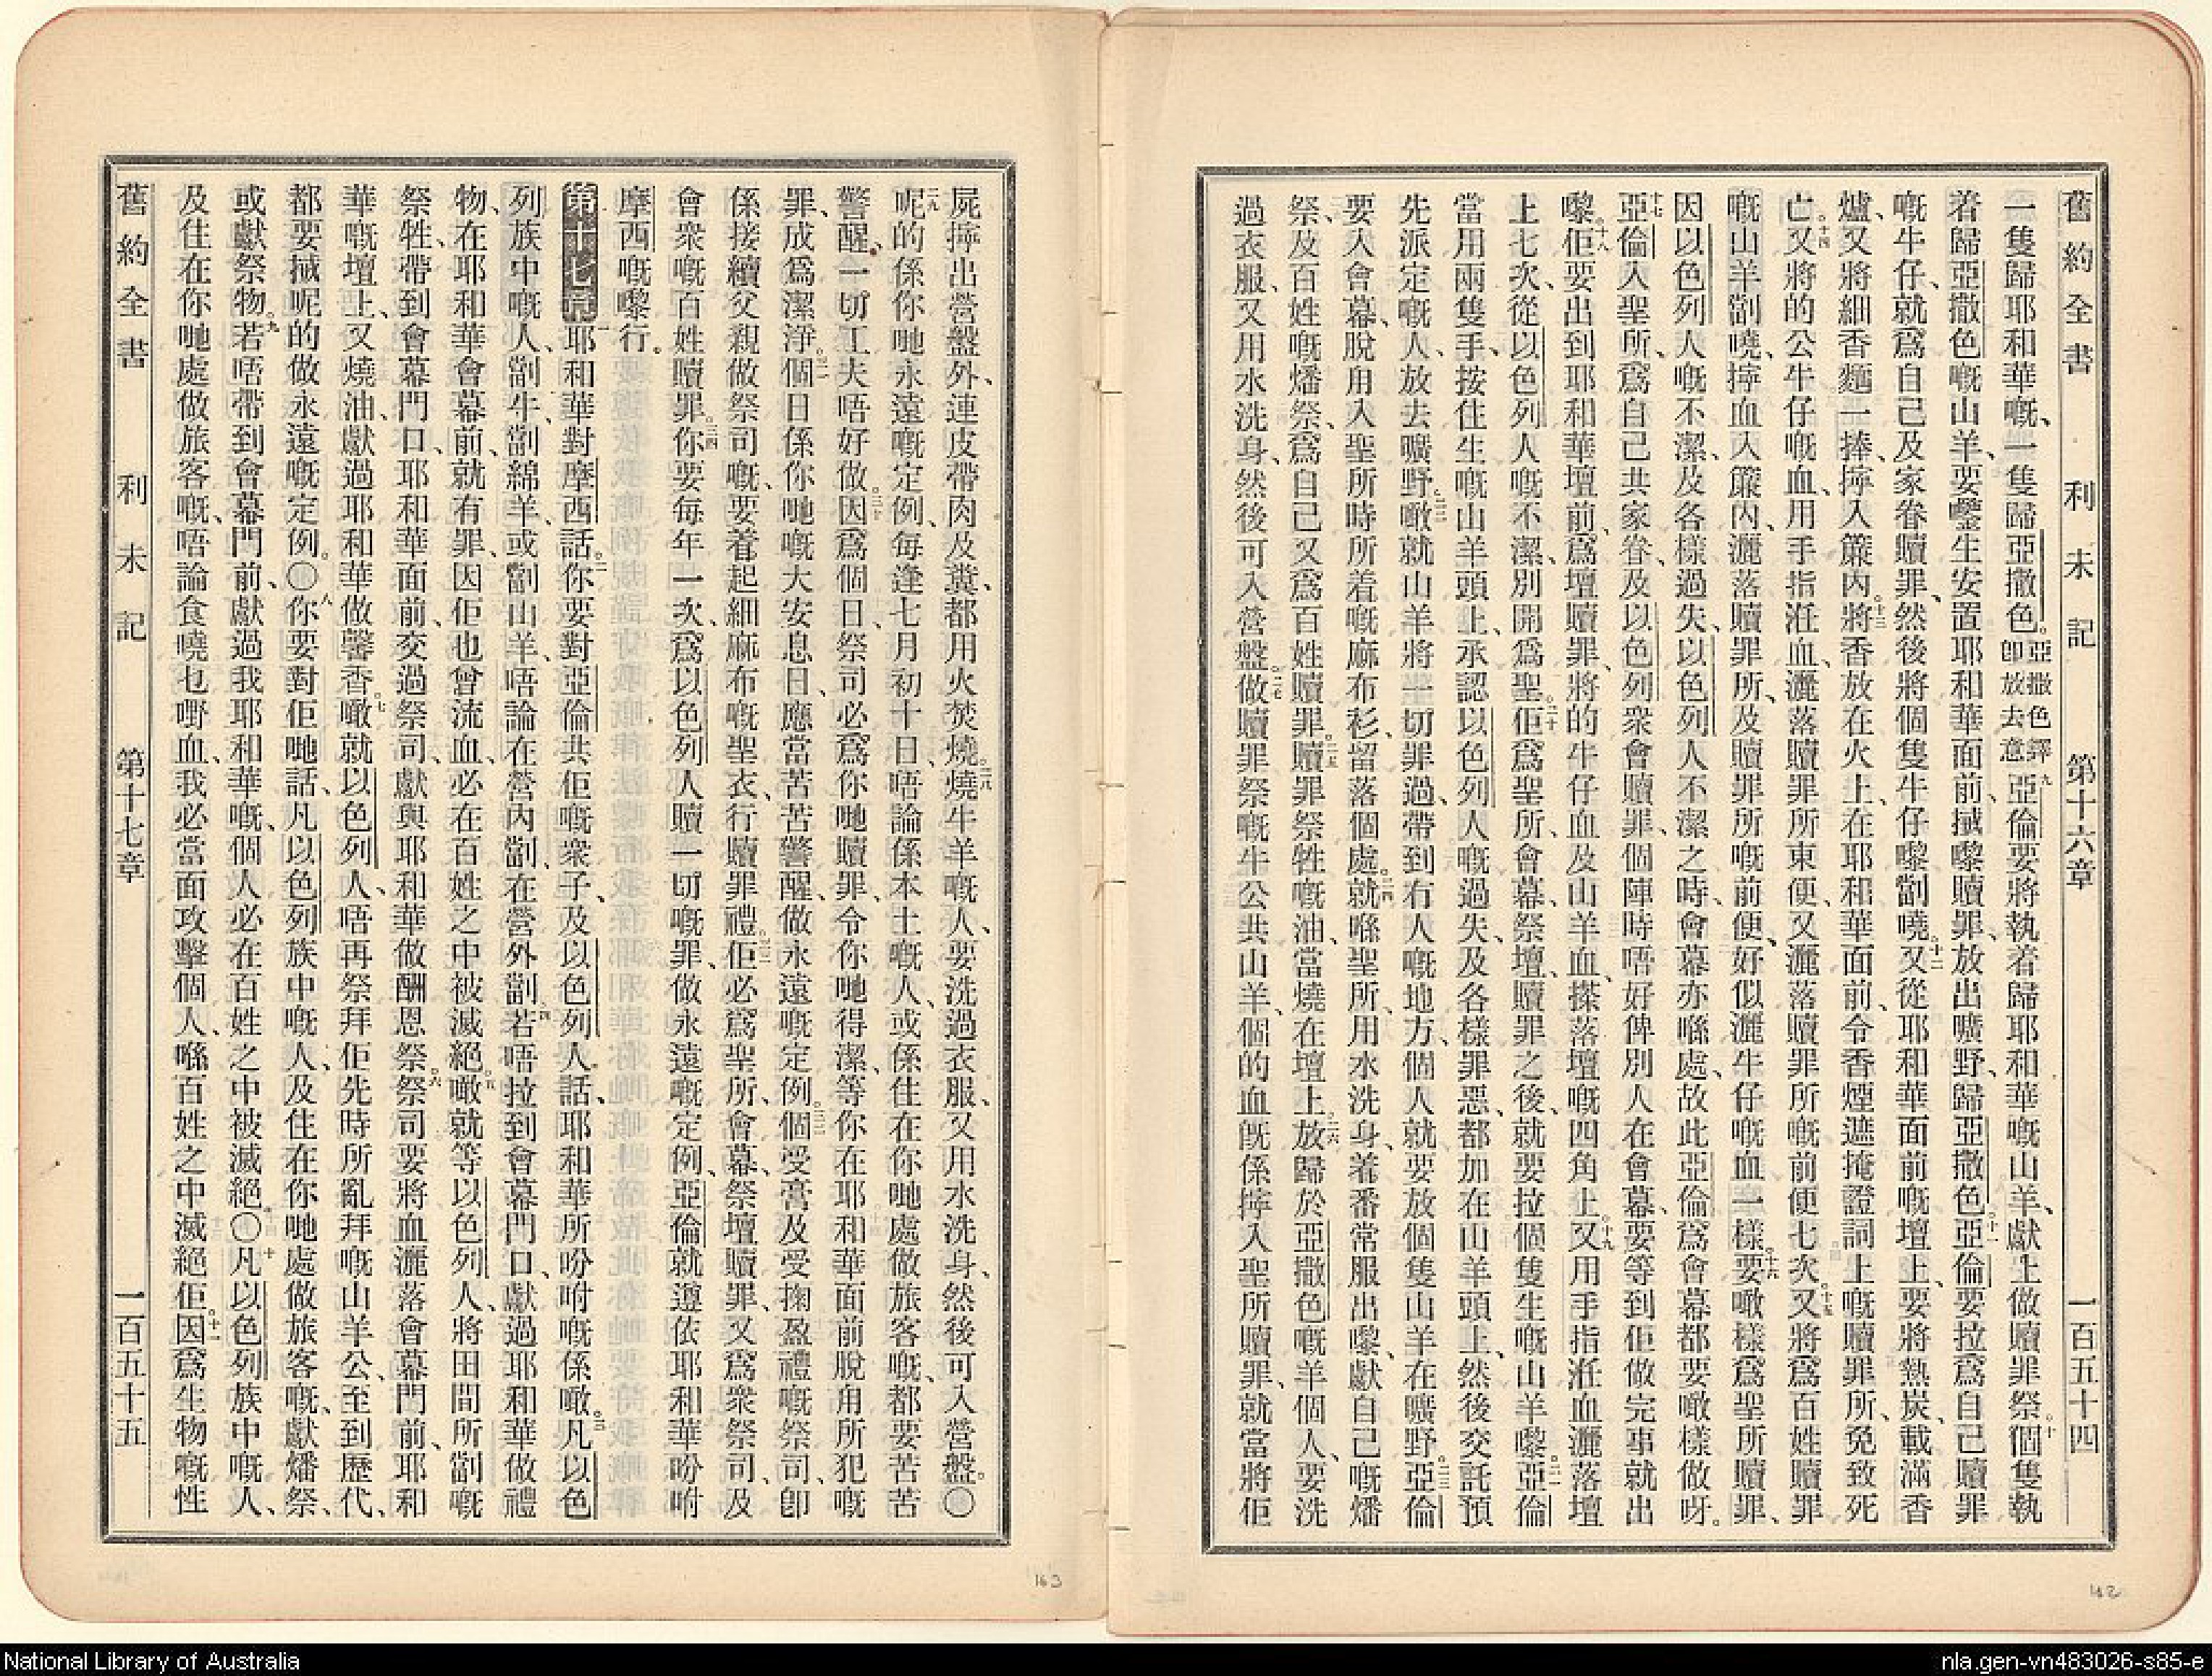 舊約全書 利未記 第十六章 一百五十四
一隻歸耶和華嘅、一隻歸亞撒色。亞撒色譯卽放去意九亞倫要將執着歸耶和華嘅山羊、獻上做贖罪祭。十個隻執
着歸亞撒色嘅山羊、要𢬿生安置耶和華面前、搣嚟贖罪、放出曠野、歸亞撒色。十一亞倫要拉爲自己贖罪
嘅牛仔、就爲自己及家眷贖罪、然後將個隻牛仔嚟劏嘵。十二又從耶和華面前嘅壇上、要將熱炭、載滿香
爐、又將細香麵一捧、擰入簾內。十三將香放在火上、在耶和華面前、令香煙遮掩證詞上嘅贖罪所、免致死
亡。十四又將的公牛仔嘅血、用手指㳸血、灑落贖罪所東便、又灑落贖罪所嘅前便七次。十五又將爲百姓贖罪
嘅山羊劏嘵、擰血入簾內、灑落贖罪所、及贖罪所嘅前便、好似灑牛仔嘅血一樣。十六要噉樣爲聖所贖罪、
因以色列人嘅不潔、及各樣過失、以色列人不潔之時、會幕亦喺處、故此亞倫爲會幕都要噉樣做呀。
十七亞倫入聖所、爲自己共家眷、及以色列衆會贖罪、個陣時唔好俾別人在會幕、要等到佢做完事就出
嚟。十八佢要出到耶和華壇前、爲壇贖罪、將的牛仔血及山羊血、搽落壇嘅四角上。十九又用手指㳸血灑落壇
上七次、從以色列人嘅不潔、別開爲聖。二十佢爲聖所、會幕、祭壇、贖罪之後、就要拉個隻生嘅山羊嚟。二一亞倫
當用兩隻手、按住生嘅山羊頭上、承認以色列人嘅過失、及各樣罪惡、都加在山羊頭上、然後交託預
先派定嘅人、放去曠野。二二噉就山羊將一切罪過、帶到冇人嘅地方、個人就要放個隻山羊在曠野。二三亞倫
要入會幕、脫甪入聖所時所着嘅麻布衫、留落個處。二四就喺聖所、用水洗身、着番常服出嚟、獻自己嘅燔
祭、及百姓嘅燔祭、爲自己又爲百姓贖罪。二五贖罪祭牲嘅油、當燒在壇上。二六放歸於亞撒色嘅羊個人、要洗
過衣服、又用水洗身、然後可入營盤。二七做贖罪祭嘅牛公共山羊、個的血旣係擰入聖所贖罪、就當將佢
屍擰出營盤外、連皮帶肉及糞、都用火焚燒。二八燒牛羊嘅人、要洗過衣服、又用水洗身、然後可入營盤。〇
二九呢的係你哋永遠嘅定例、每逢七月初十日、唔論係本土嘅人、或係住在你哋處做旅客嘅、都要苦苦
警醒、一切工夫唔好做。三十因爲個日、祭司必爲你哋贖罪、令你哋得潔、等你在耶和華面前脫甪所犯嘅
罪、成爲潔淨。三一個日係你哋嘅大安息日、應當苦苦警醒、做永遠嘅定例。三二個受膏及受掬盈禮嘅祭司、卽
係接續父親做祭司嘅、要着起細麻布嘅聖衣、行贖罪禮。三三佢必爲聖所、會幕、祭壇贖罪、又爲衆祭司、及
會衆嘅百姓贖罪。三四你要每年一次、爲以色列人贖一切嘅罪、做永遠嘅定例、亞倫就遵依耶和華吩咐
摩西嘅嚟行。
第十七章一耶和華對摩西話。二你要對亞倫共佢嘅衆子、及以色列人話、耶和華所吩咐嘅係噉。三凡以色
列族中嘅人、劏牛、劏綿羊、或劏山羊、唔論在營內劏、在營外劏。四若唔拉到會幕門口、獻過耶和華做禮
物、在耶和華會幕前、就有罪、因佢也曾流血、必在百姓之中被滅絕。五噉就等以色列人、將田間所劏嘅
祭牲、帶到會幕門口、耶和華面前、交過祭司、獻與耶和華做酬恩祭。六祭司要將血灑落會幕門前、耶和
華嘅壇上、又燒油、獻過耶和華做馨香。七噉就以色列人、唔再祭拜佢先時所亂拜嘅山羊公、至到歷代、
都要搣呢的做永遠嘅定例。〇八你要對佢哋話、凡以色列族中嘅人、及住在你哋處做旅客嘅、獻燔祭、
或獻祭物。九若唔帶到會幕門前、獻過我耶和華嘅、個人必在百姓之中被滅絕。〇十凡以色列族中嘅人、
及住在你哋處做旅客嘅、唔論食嘵乜嘢血、我必當面攻擊個人、喺百姓之中滅絕佢。十一因爲生物嘅性
舊約全書 利未記 第十七章 一百五十五
162
163
National Library of Australia
nla.gen-vn483026-s85-e